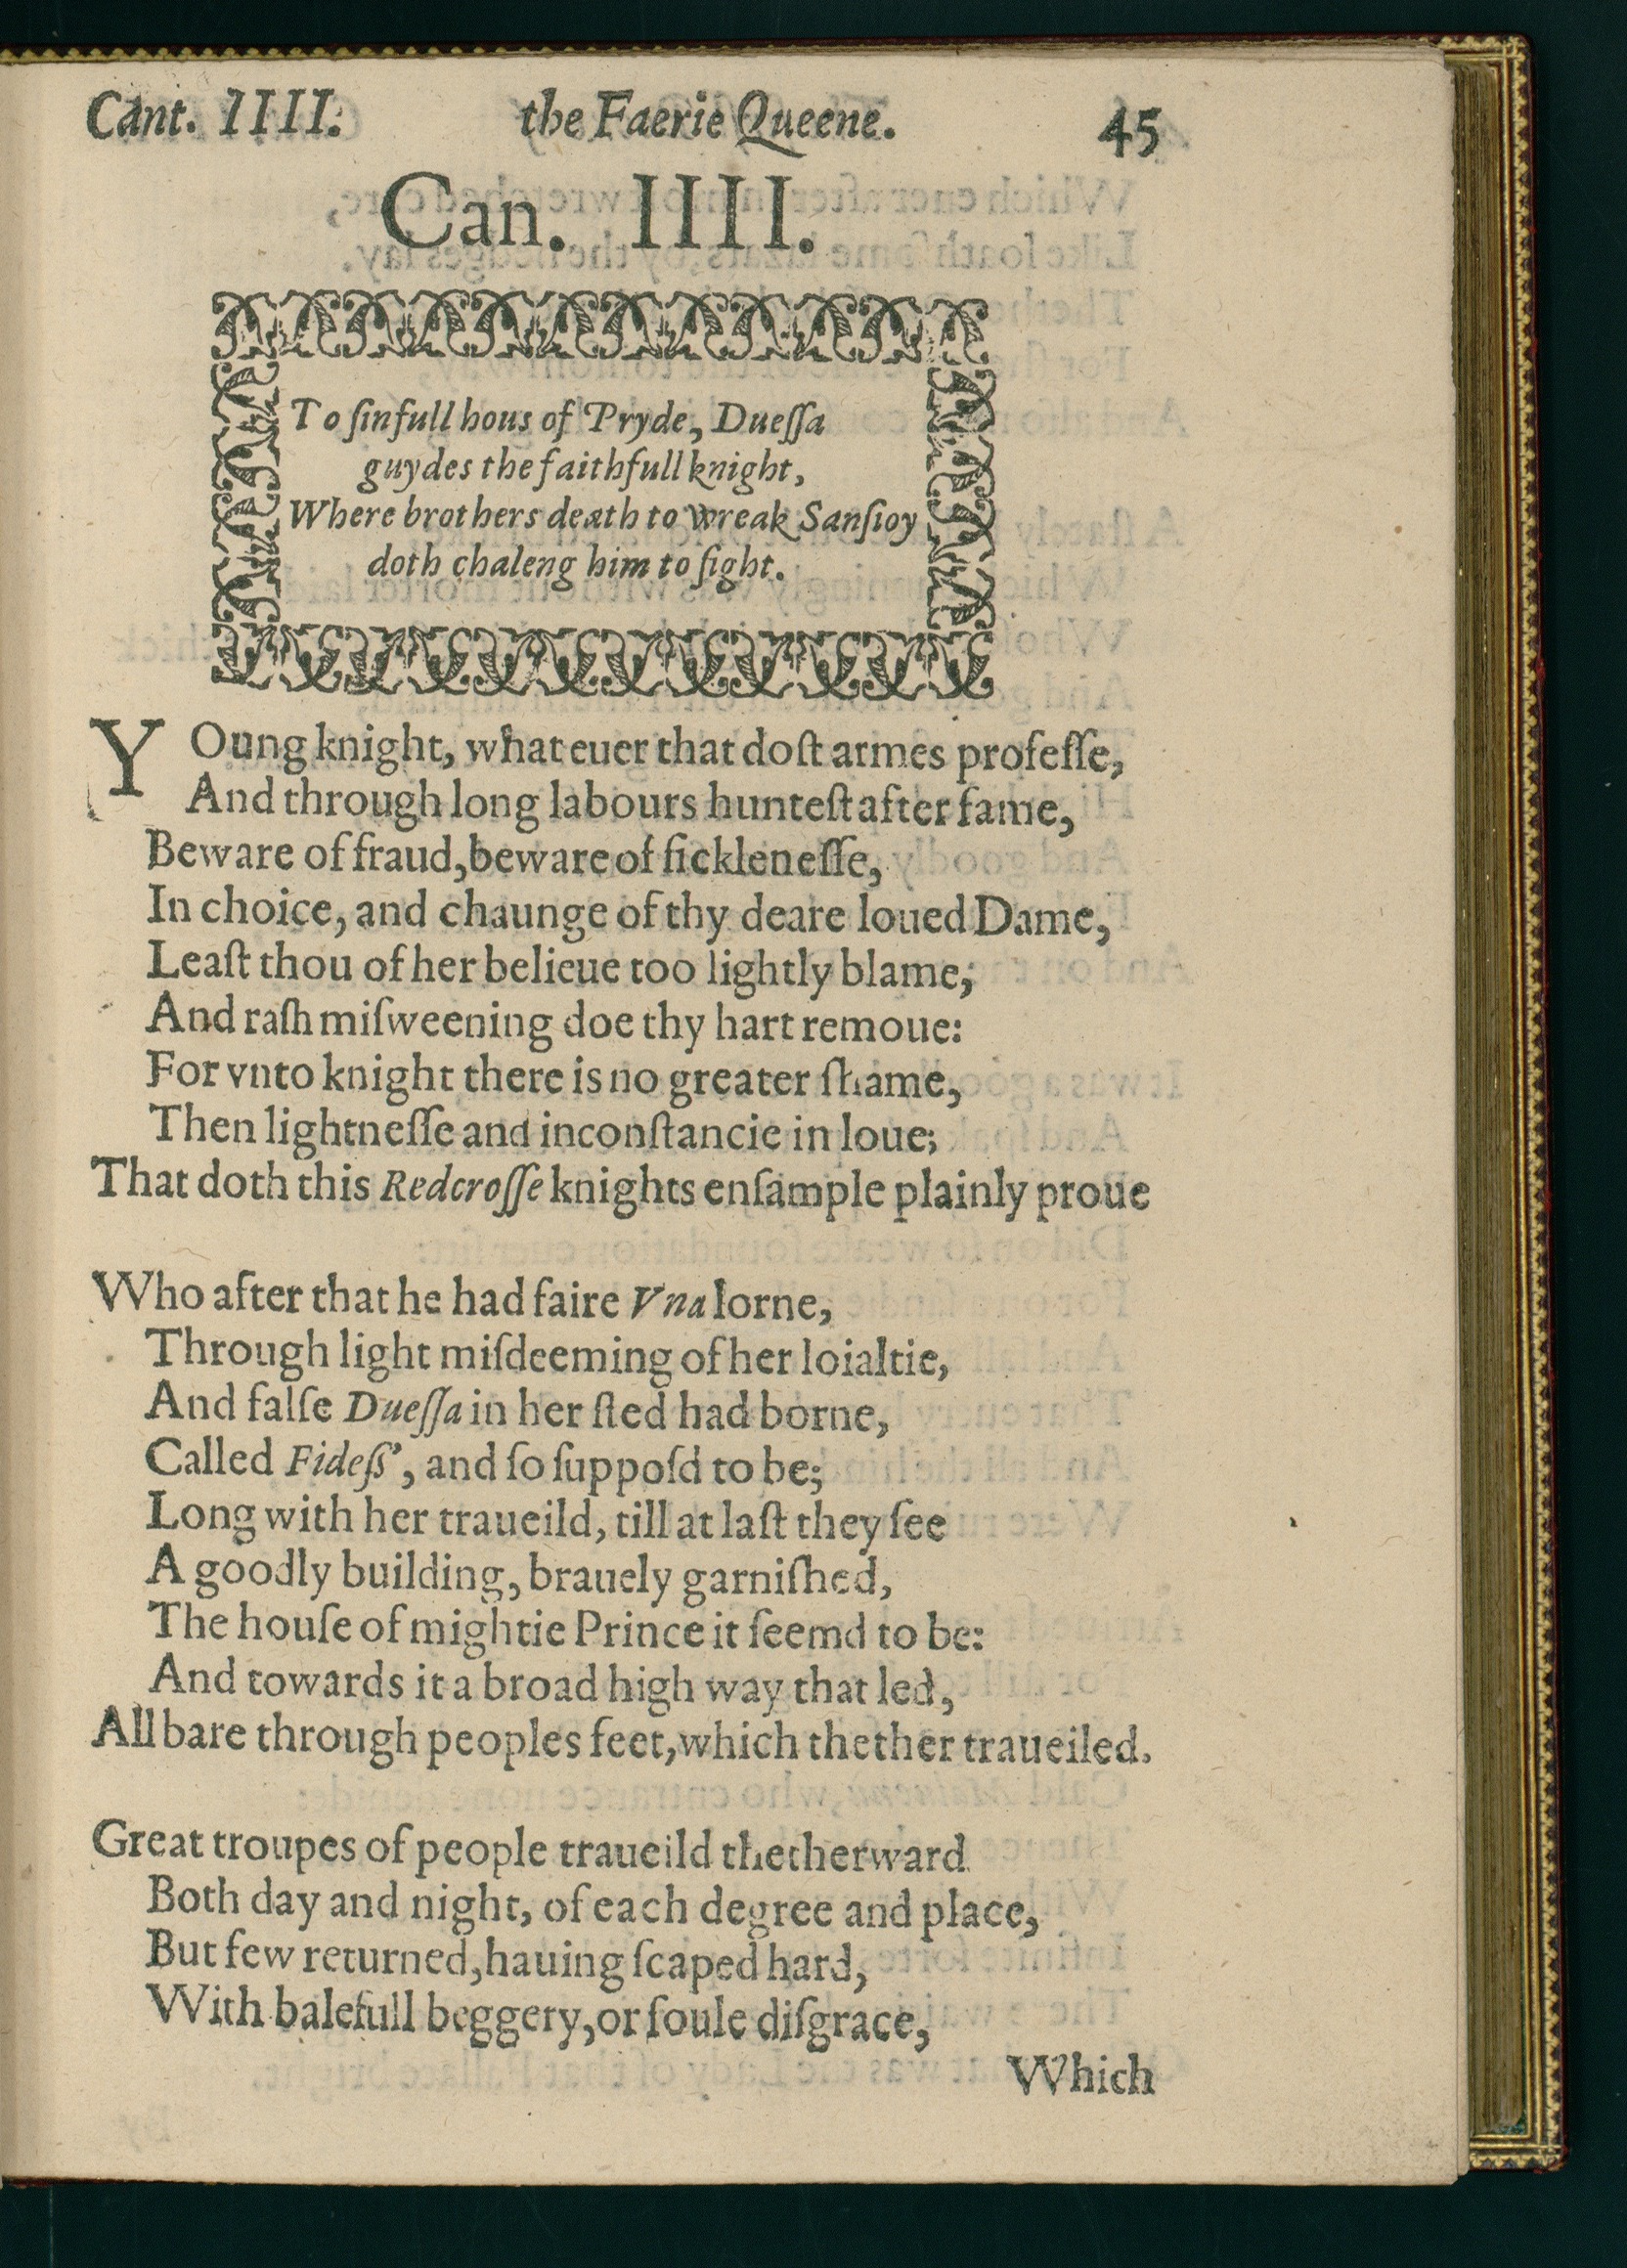 Cant. IIII. the Faerie Queene. 45
Can. IIII.
To ſinfull hous of Pryde, Dueſſa
guydes the faithfull knight,
Where brothers death to wreak Sanſioy
doth chaleng him to fight.
YOung knight, what euer that doſt armes profeſſe,
And through long labours hunteſt after fame,
Beware of fraud, beware of fickleneſſe,
In choice, and chaunge of thy deare loued Dame,
Leaſt thou of her belieue too lightly blame,
And raſh miſweening doe thy hart remoue:
For vnto knight there is no greater ſhame,
Then lightneſſe and inconſtancie in loue;
That doth this Redcroſſe knights enſample plainly proue
Who after that he had faire Vna lorne,
Through light miſdeeming of her loialtie,
And falſe Dueſſa in her ſted had borne,
Called Fideß', and ſo ſuppoſd to be;
Long with her traueild, till at laſt they ſee
A goodly building, brauely garniſhed,
The houſe of mightie Prince it ſeemd to be:
And towards it a broad high way that led,
All bare through peoples feet, which thether traueiled.
Great troupes of people traueild thetherward
Both day and night, of each degree and place,
But few returned, hauing ſcaped hard,
With balefull beggery, or foule diſgrace,
Which